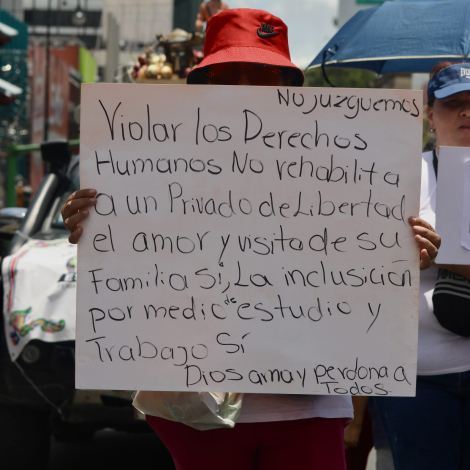 No juzguemos
Violar los Derechos
Humanos No rehabilita
a un Privado de Libertad
el amor y visita de su
Familia Sí, La inclusición
por medio de estudio y
Trabajo Sí
Dios ama y perdona a
Todos.